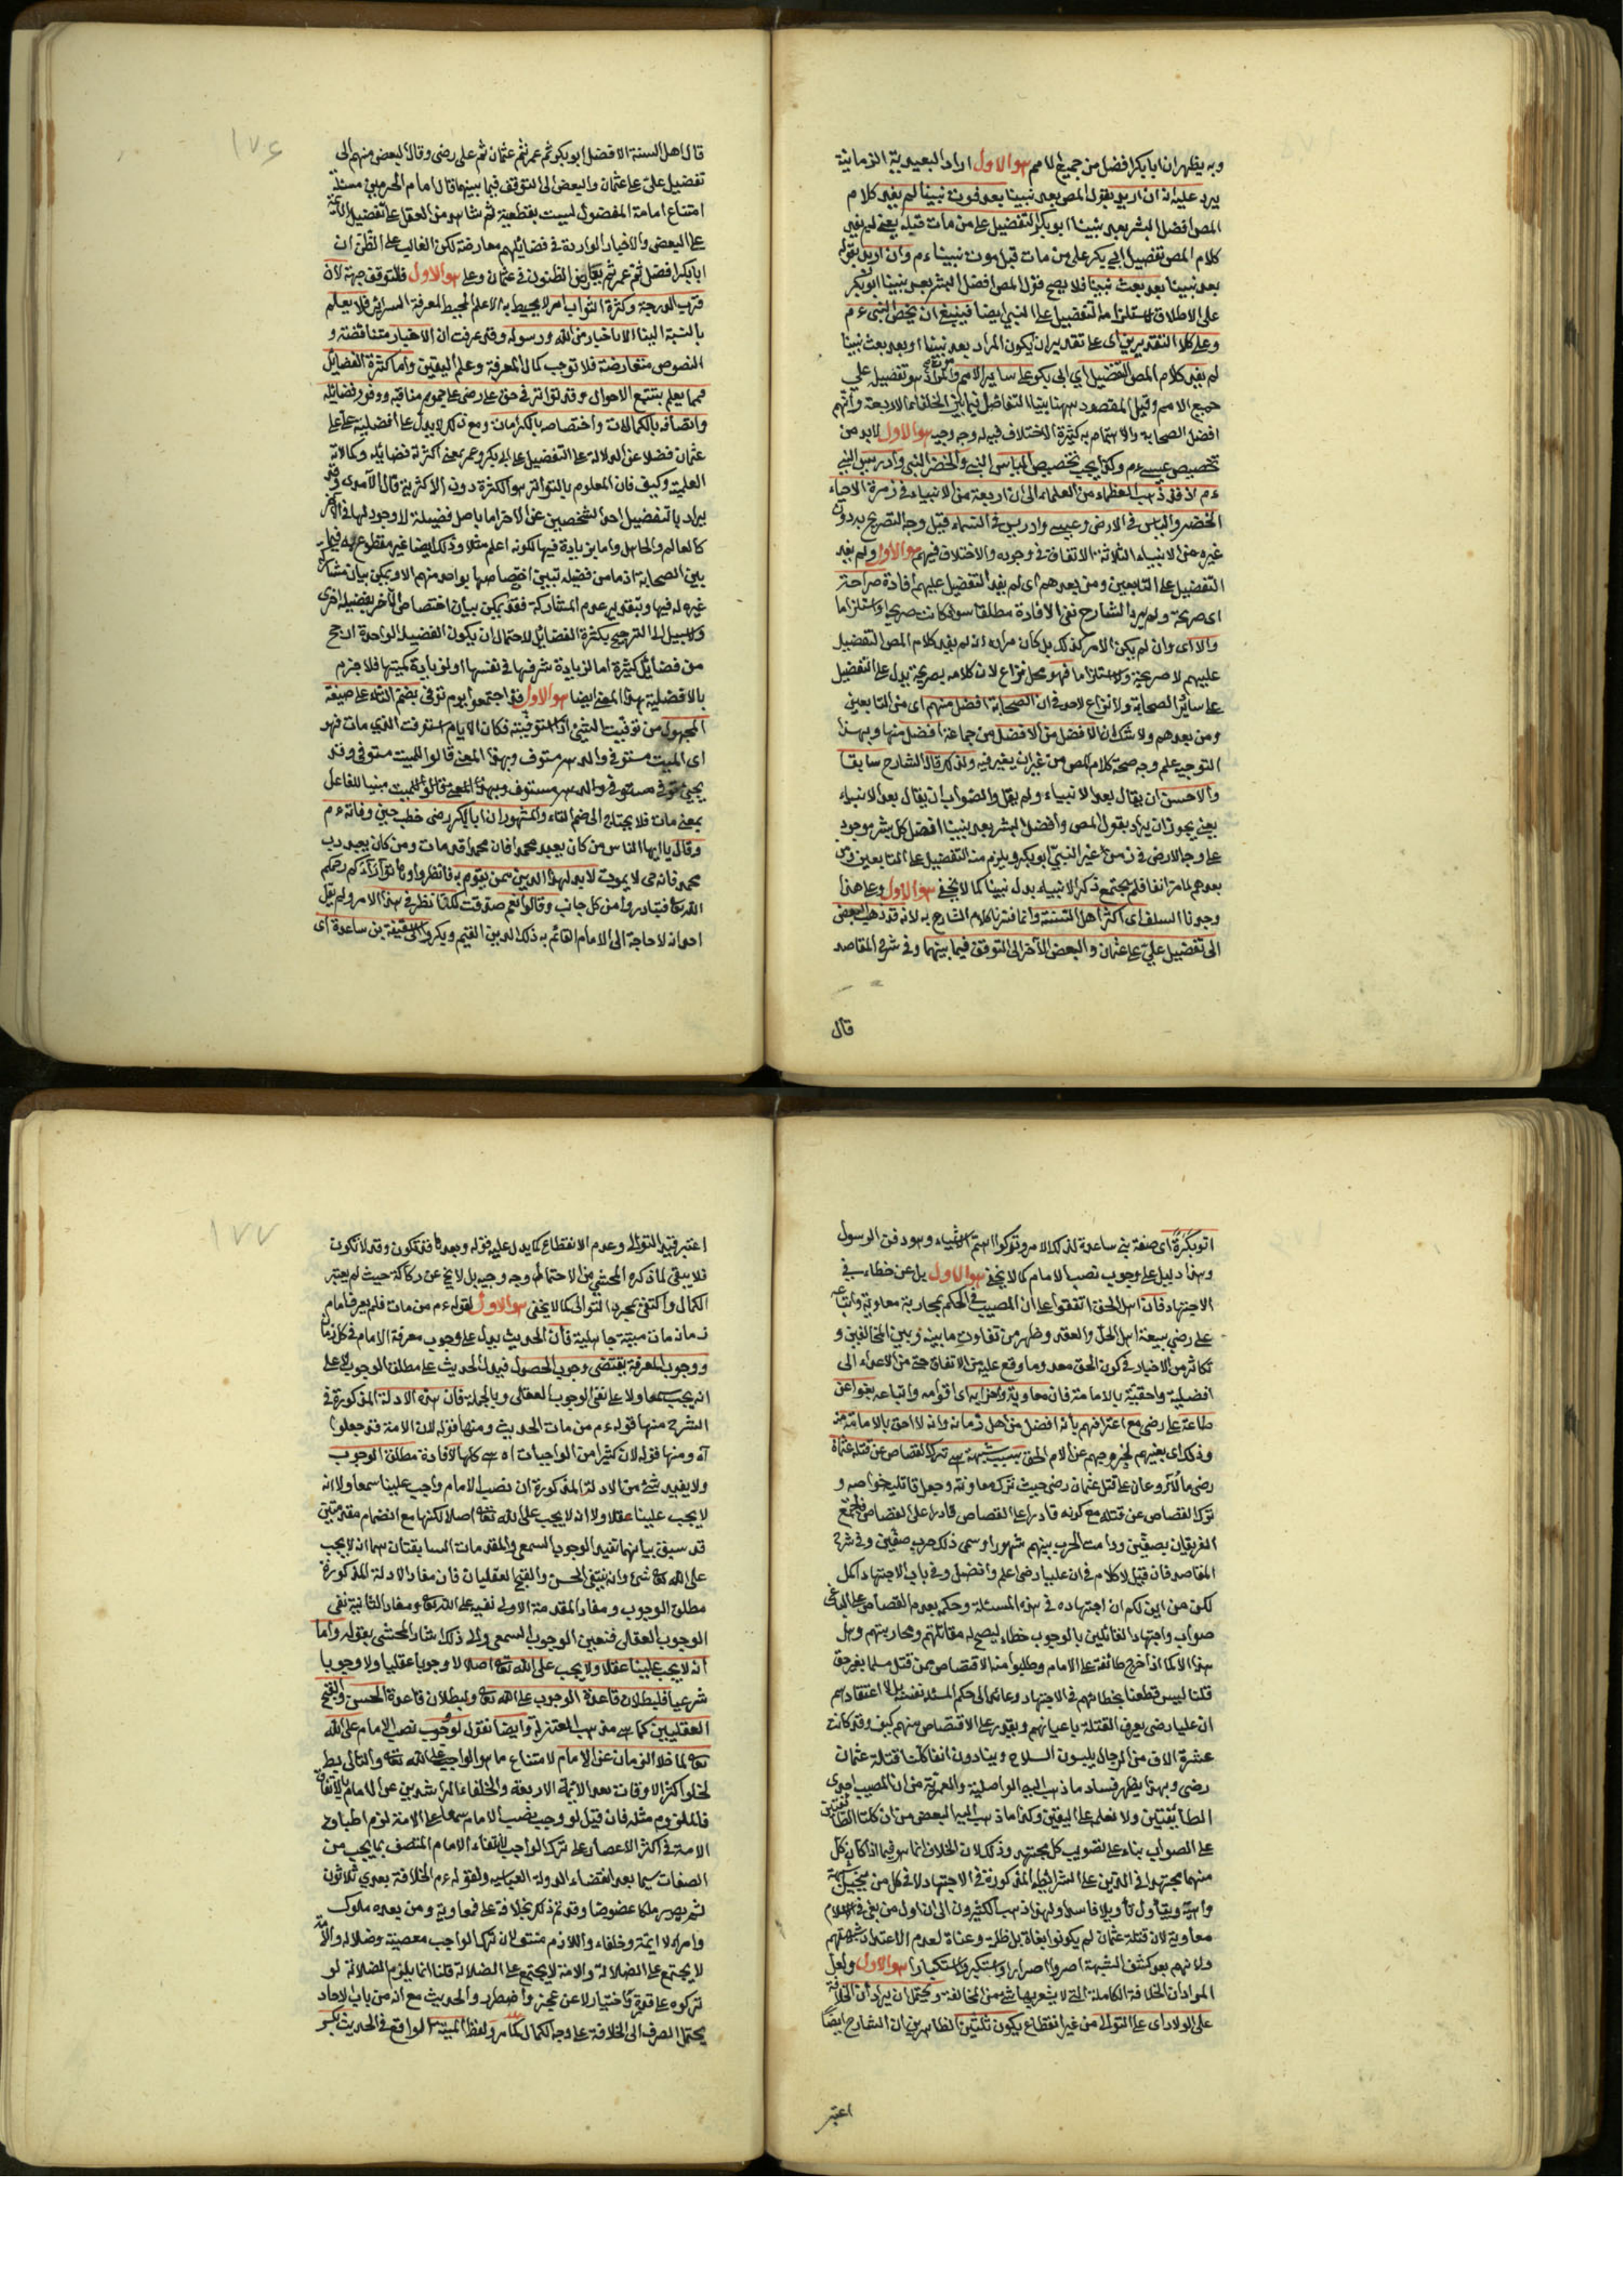 وبه يظهر ان ابا بكر افضل من جميع الامم هو الاول اراد البعدية الزمانية
يرد عليه انه ان اريد بقول المص بعد نبينا بعد فوت نبينا لم يفد كلام
المص افضل البشر بعد نبينا ابو بكر التفضيل على من مات قبله يعني لم يفد
كلام المص تفضيل ابي بكر على من مات قبل موت نبينا ءم وان اريد بقوله
بعد نبينا بعد بعث نبينا فلا يصح قول المص افضل البشر بعد نبينا ابو بكر
على الاطلاق لاستلزامه التفضيل على النبي ايضا فينبغي ان يخص النبي ءم
وعلى كلا التقديرين اى على تقدير ان يكون المراد بعد نبينا او بعد بعث نبينا
لم يفد كلام المص التفضيل اي ابى بكر على ساير الامم والمراد هو تفضيله علي
جميع الامم وقيل المقصود ههنا بيان التفاضل فيما بين الخلفاء الاربعة وانهم
افضل الصحابة والاهتمام به لكثرة الاختلاف فيه له وجه وجيه هو الاول لابد من
تخصيص عيسى ءم وكذا يجب تخصيص الياس النبي والخضر النبي وادريس النبي
ءم اذ قد ذهب العظماء من العلماء الى ان اربعة من الانبياء في زمرة الاحياء
الخضر والياس في الارض وعيسى وادريس في السماء قيل وجه التصريح به دون
غيره من الانبياء الثلاثة الاتفاق في وجوده والاختلاف فيهم هو الاول ولم يفد
التفضيل على التابعين ومن بعدهم اى لم يفد التفضيل عليهم افادة صراحة
اى صريحة ولم يرد الشارح نفى الافادة مطلقا سواء كانت صريحا او استلزاما
والا اى وان لم يكن الامر كذلك بل كان مراده انه لم يفد كلام المص التفضيل
عليهم لا صريحة ولا استلزاما فهو محل نزاع لان كلامه بصريحه يدل على التفضيل
على سائر الصحابة ولا نزاع لاحد في ان الصحابة افضل منهم اى من التابعين
ومن بعدهم ولا شك ان الافضل من الافضل من جماعة افضل منها وبهذا
التوجيه علم وجه صحة كلام المص من غير ان يغير فيه ولذلك قال الشارح سابقا
والاحسن ان يقال بعد الانبياء ولم يقل والصواب ان يقال بعد الانبياء
يعني يجوز ان يراد بقول المص وافضل البشر بعد نبينا افضل كل بشر موجود
على وجه الارض في زمن غير النبي ابو بكر ويلزم منه التفضيل على التابعين ومن
بعدهم لما مر انفا فلم يحتج مع ذكر الانبياء بدل نبينا كما لا يخفى هو الاول وعلى هذا
وجدنا السلف اى اكثر اهل السنة وانما فسرنا كلام الشارح به لانه قد ذهب البعض
الى تفضيل علي على عثمان والبعض الآخر الى التوقف فيما بينهما وفي شرح المقاصد
قال
١٧٦
قال اهل السنة الافضل ابو بكر ثم عمر ثم عثمان ثم على رضى وقال البعض منهم الى
تفضيل علي على عثمان والبعض الى التوقف فيما بينهما قال امام الحرمين مسئلة
امتناع امامة المفضول ليست بقطعية ثم لا شاهد من العقل على تفضيل الائمة
على البعض والاخبار الواردة في فضائلهم معارضة لكن الغالب على الظن ان
ابا بكر افضل ثم عمر ثم يتعارض الظنون في عثمان وعلى هو الاول فللتوقف جهة لان
قرب الدرجة وكثرة الثواب امر لا يحيط به الا علم المحيط لمعرفة السرائر فلا يعلم
بالنسبة الينا الا باخبار من الله ورسوله وقد عرفت ان الاخبار متناقضة و
النصوص متعارضة فلا توجب كمال المعرفة وعلم اليقين واما كثرة الفضائل
فمما يعلم بتتبع الاحوال وقد تواتر في حق على رضى على عموم مناقبه ووفور فضائله
واتصافه بالكمالات واختصاصه بالكرامات ومع ذلك لا يدل على افضلية على على
عثمان فضلا عن الدلالة على التفضيل على ابى بكر وعمر بمعنى اكثرية فضائله وكمالاته
العلمية وكيف فان المعلوم بالتواتر هو الكثرة دون الاكثرية قال الآمدى وقد
يراد بالتفضيل احد الشخصين عن الآخر اما باصل فضيلة لا وجود لها في الآخر
كالعالم والجاهل واما بزيادة فيها لكونه اعلم مثلا وذلك ايضا غير مقطوع به فيما
بين الصحابة اذ ما من فضيلة تبين اختصاصها بواحد منهم الا ويمكن بيان مشاركة
غيره له فيها وبتقدير عدم المشاركة فقد يمكن بيان اختصاص الآخر بفضيلة اخرى
ولا سبيل الى الترجيح بكثرة الفضائل لاحتمال ان يكون الفضيلة الواحدة ارجح
من فضائل كثيرة اما لزيادة شرفها في نفسها او لزيادة كميتها فلا جزم
بالافضلية بهذا المعنى ايضا هو الاول قد اجتمعوا يوم توفى بضم التاء على صيغة
المجهول من توفيت الشئ اذا استوفيته فكان الايام استوفت الذي مات فهو
اى الميت مستوفى والدهر مستوف وبهذا المعنى قالوا للميت متوفى وقد
يجئ توفى متوفى والدهر مستوف وبهذا المعنى قالوا للميت مبنيا للفاعل
بمعنى مات فلا يحتاج الى ضم التاء والمشهور ان ابا بكر رضى خطب حين وفاته ءم
وقال يا ايها الناس من كان يعبد محمدا فان محمدا قد مات ومن كان يعبد رب
محمد فانه حى لا يموت لابد لهذا الدين ممن يقوم به فانظروا وهاتوا آراءكم رحمكم
الله تعالى فتبادروا من كل جانب وقالوا نعم صدقت لكنا ننظر في هذا الامر ولم يقل
احد انه لا حاجة الى الامام القائم به ذلك الدين القيم وبكروا الى سقيفة بن ساعدة اى
اتوا بكرة اى صفة بني ساعدة لذلك الامر وتركوا اهم الاشياء وهو دفن الرسول
وهذا دليل على وجوب نصب الامام كما لا يخفى هو الاول بل عن خطاء في
الاجتهاد فان اهل الحق اتفقوا على ان المصيب في الحكم بمحاربة معاوية واتباعه
على رضى ببيعة اهل الحل والعقد وظهر من تفاوت ما بينه وبين المخالفين و
تكاثر من الاخبار في كون الحق معه وما وقع عليه من الاتفاق حتى من الاعداء الى
افضليته واحقيته بالامامة فان معاوية واحزابه اى اقوامه واتباعه بغوا عن
طاعة على رضى مع اعترافهم بانه افضل من اهل زمانه وانه الاحق بالامامة منه
وذلك اى بغيهم لخروجهم عن الامام الحق بسبب شبهة هى ترك القصاص عن قتلة عثمان
رضى عان على قتل عثمان رضى حيث ترك معاونته وجعل قاتليه خواصه و
ترك القصاص عن قتله مع كونه قادرا على القصاص فاجتمع
الفريقان بصفين ودامت الحرب بينهم شهورا وسمى ذلك حرب صفين وفي شرح
المقاصد فان قيل لا كلام في ان عليا رضى اعلم وافضل وفي باب الاجتهاد اكمل
لكن من اين لكم ان اجتهاده في هذه المسئلة وحكمه بعدم القصاص على الباغى
صواب واجتهاد القائلين بالوجوب خطاء ليصح له مقاتلتهم ومحاربتهم وهل
هذا الا كما اذا خرج طائفة على الامام وطلبوا منه الاقتصاص ممن قتل مسلما بغير حق
قلنا ليس قطعنا بخطائهم في الاجتهاد وعائدا الى حكم المسئلة نفسه بل الى اعتقادهم
ان عليا رضى يعرف القتلة باعيانهم ويقدر على الاقتصاص منهم كيف وقد كانت
عشرة الاف من الرجال يلبسون السلاح وينادون اننا كلنا قتلة عثمان
رضى وبهذا يظهر فساد ما ذهب اليه الواصلية والعمرية من ان المصيب احدى
الطائفتين ولا نعلمه على اليقين وكذا ما ذهب اليه البعض من ان كلتا الطائفتين
على الصواب بناء على تصويب كل مجتهد وذلك لان الخلاف انما هو فيما اذا كان كل
منهما مجتهدا في الدين على الشرائط المذكورة في الاجتهاد لا في كل من يتخيل شبهة
واهية ويتأول تأويلا فاسدا ولهذا ذهب الاكثرون الى ان اول من بغى في الاسلام
معاوية لان قتلة عثمان لم يكونوا بغاة بل ظلمة وعتاة لعدم الاعتداد بشبهتهم
ولانهم بعد كشف الشبهة اصروا اصرارا واستكبروا استكبارا هو الاول ولعل
المراد ان الخلافة الكاملة التي لا يشوبها شئ من المخالفة ويحتمل ان يراد ان الخلافة
على الولاء اى على التوالى من غير انقطاع يكون ثلثين الظاهر من ان الشارح ايضا
اعتبر
١٧٧
اعتبر قيد التوالى وعدم الانقطاع كما يدل عليه قوله وبعدها قد تكون وقد لا تكون
فلا يبقى لما ذكره المحشي من الاحتمال وجه وجيه بل لا يخ عن ركاكة حيث لم يعتبر
الكمال واكتفى بمجرد التوالى كما لا يخفى هو الاول لقوله ءم من مات فلم يعرف امام
زمانه مات ميتة جاهلية فان الحديث يدل على وجوب معرفة الامام في كل زمان
ووجوب المعرفة يقتضى وجوب الحصول فيدل الحديث على مطلق الوجوب لا على
انه يجب سمعا ولا على نفى الوجوب العقلى وبالجملة فان هذه الادلة المذكورة في
الشرح منها قوله ءم من مات الحديث ومنها قوله لان الامة قد جعلوا
آه ومنها قوله لان كثيرا من الواجبات اه هى كلها لافادة مطلق الوجوب
ولا يفيد شئ من الادلة المذكورة ان نصب الامام واجب علينا سمعا ولا انه
لا يجب علينا عقلا ولا انه لا يجب على الله تعالى اصلا لكنها مع انضمام مقدمتين
قد سبق بيانهما تفيد الوجوب السمعى والمقدمات السابقتان هما انه لا يجب
على الله تعالى شئ وانه ينتفى الحسن والقبح العقليان فان مفاد الادلة المذكورة
مطلق الوجوب ومفاد المقدمة الاولى نفيه على الله تعالى ومفاد الثانية نفى
الوجوب العقلى فتعين الوجوب السمعى والى ذلك اشار المحشى بقوله واما
انه لا يجب علينا عقلا ولا يجب على الله تعالى اصلا لا وجوبا عقليا ولا وجوبا
شرعيا فلبطلان قاعدة الوجوب على الله تعالى ولبطلان قاعدة الحسن والقبح
العقليين كما هى مذهب المعتزلة وايضا نقول لو وجب نصب الامام على الله
تعالى لما خلا الزمان عن الامام لامتناع ما هو الواجب على الله تعالى والتالى بط
لخلو اكثر الاوقات بعد الائمة الاربعة والخلفاء الراشدين عن الامام بالاتفاق
فالملزوم مثله فان قيل لو وجب نصب الامام سمعا على الامة لزم اطباق
الامة في اكثر الاعصار على ترك الواجب لانتفاء الامام المتصف بما يجب من
الصفات سيما بعد انقضاء الدولة العباسية ولقوله ءم الخلافة بعدى ثلاثون
ثم يصير ملكا عضوضا وقد تم ذلك بخلافة على فمعاوية ومن بعده ملوك
وامراء لا ائمة وخلفاء واللازم منتف لان ترك الواجب معصية وضلالة والامة
لا يجتمع على الضلالة والامة لا يجتمع على الضلالة قلنا انما يلزم الضلالة لو
تركوه على قدرة واختيار لا عن عجز واضطرار والحديث مع انه من باب الاحاد
يحتمل الصرف الى الخلافة على وجه الكمال كما مر ولفظ الميتة الواقع في الحديث بكسر